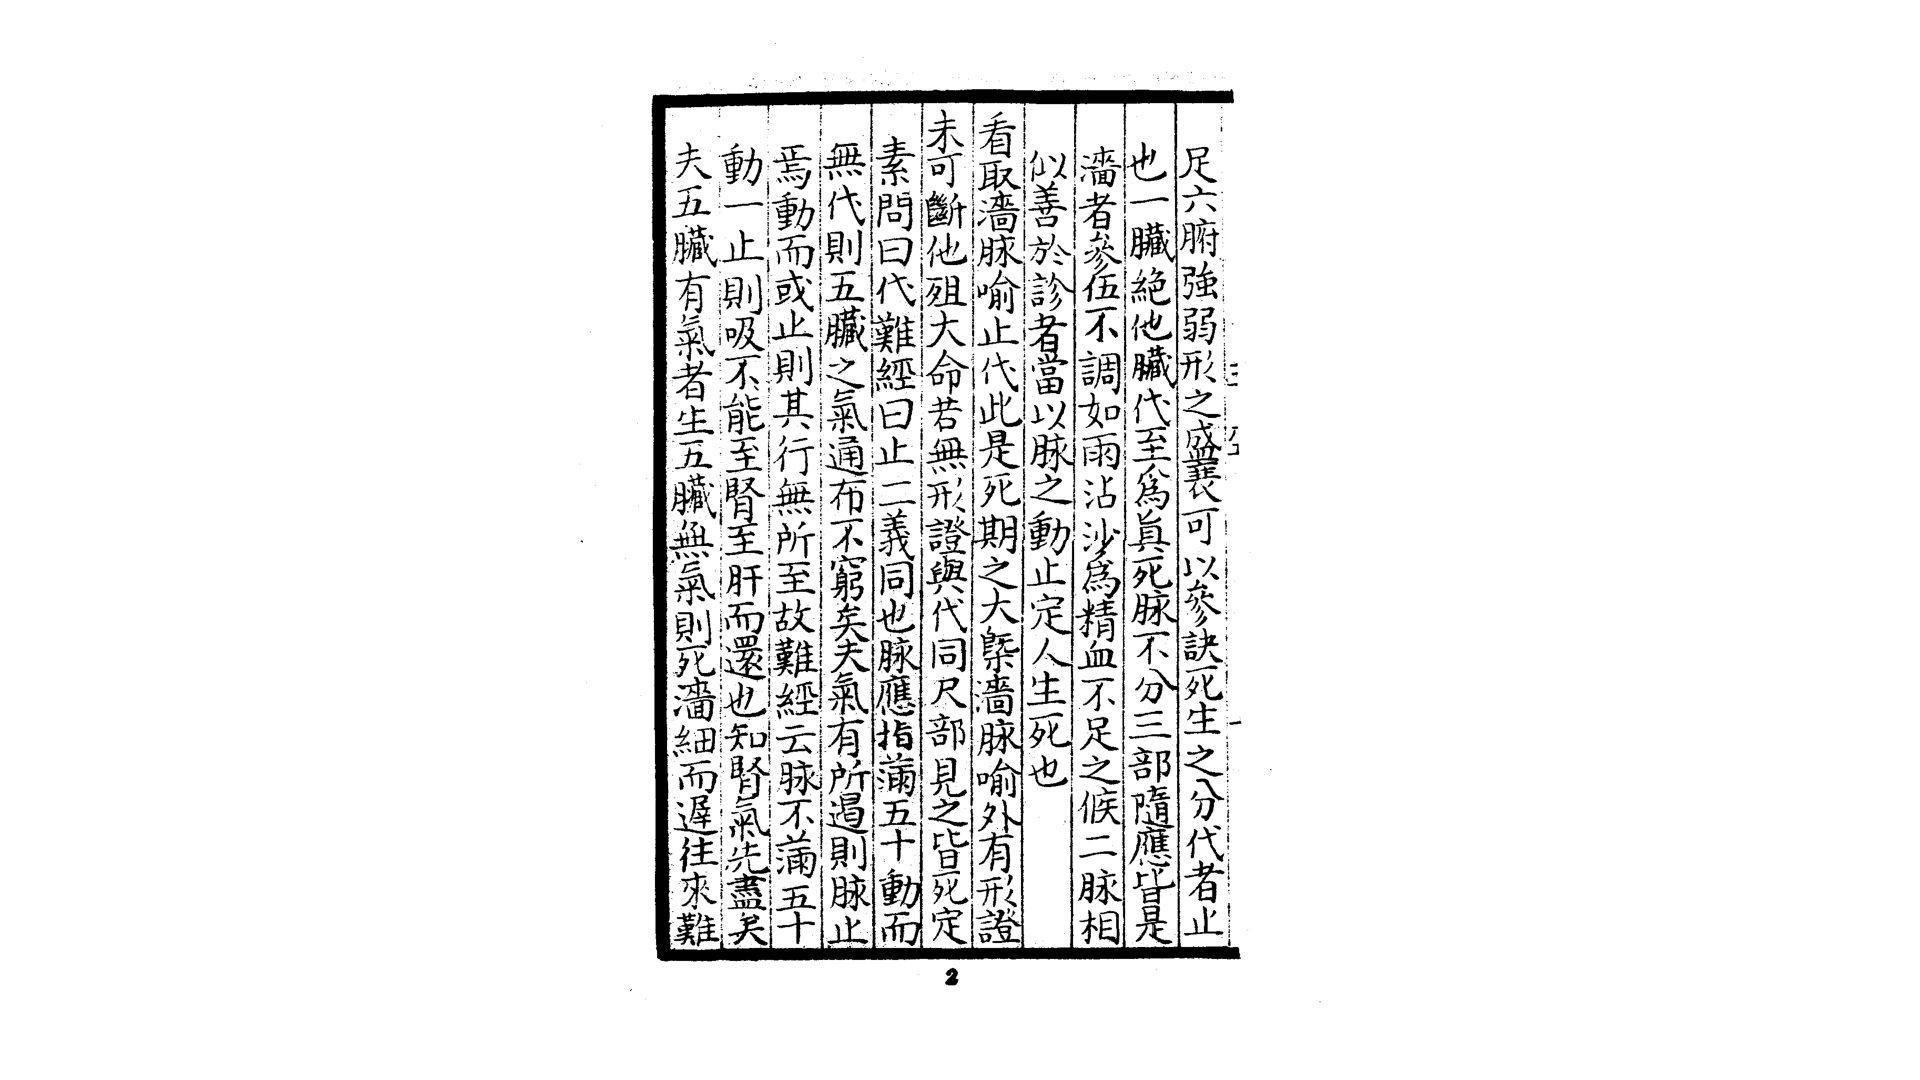 足六腑強弱形之盛衰可以參訣死生之分代者止
也一臟絶他臟代至爲眞死脉不分三部隨應皆是
濇者參伍不調如雨沾沙爲精血不足之候二脉相
似善於診者當以脉之動止定人生死也
看取濇脉喻止代此是死期之大槩濇脉喻外有形證
未可斷他殂大命若無形證與代同尺部見之皆死定
素問曰代難經曰止二義同也脉應指滿五十動而
無代則五臟之氣通布不窮矣夫氣有所遏則脉止
焉動而或止則其行無所至故難經云脉不滿五十
動一止則吸不能至腎至肝而還也知腎氣先盡矣
夫五臟有氣者生五臟無氣則死濇細而遲往來難
2